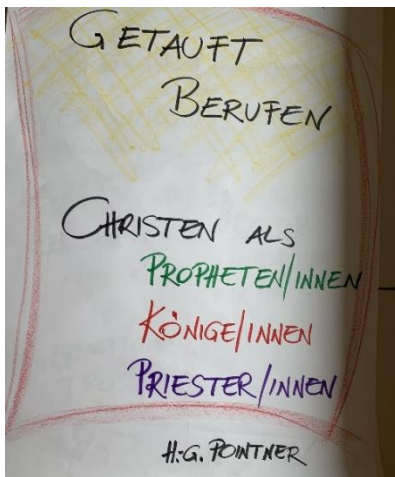 GETAUFT
BERUFEN
CHRISTEN ALS
PROPHETEN/INNEN
KÖNIGE/INNEN
PRIESTER/INNEN
H.-G. POINTNER